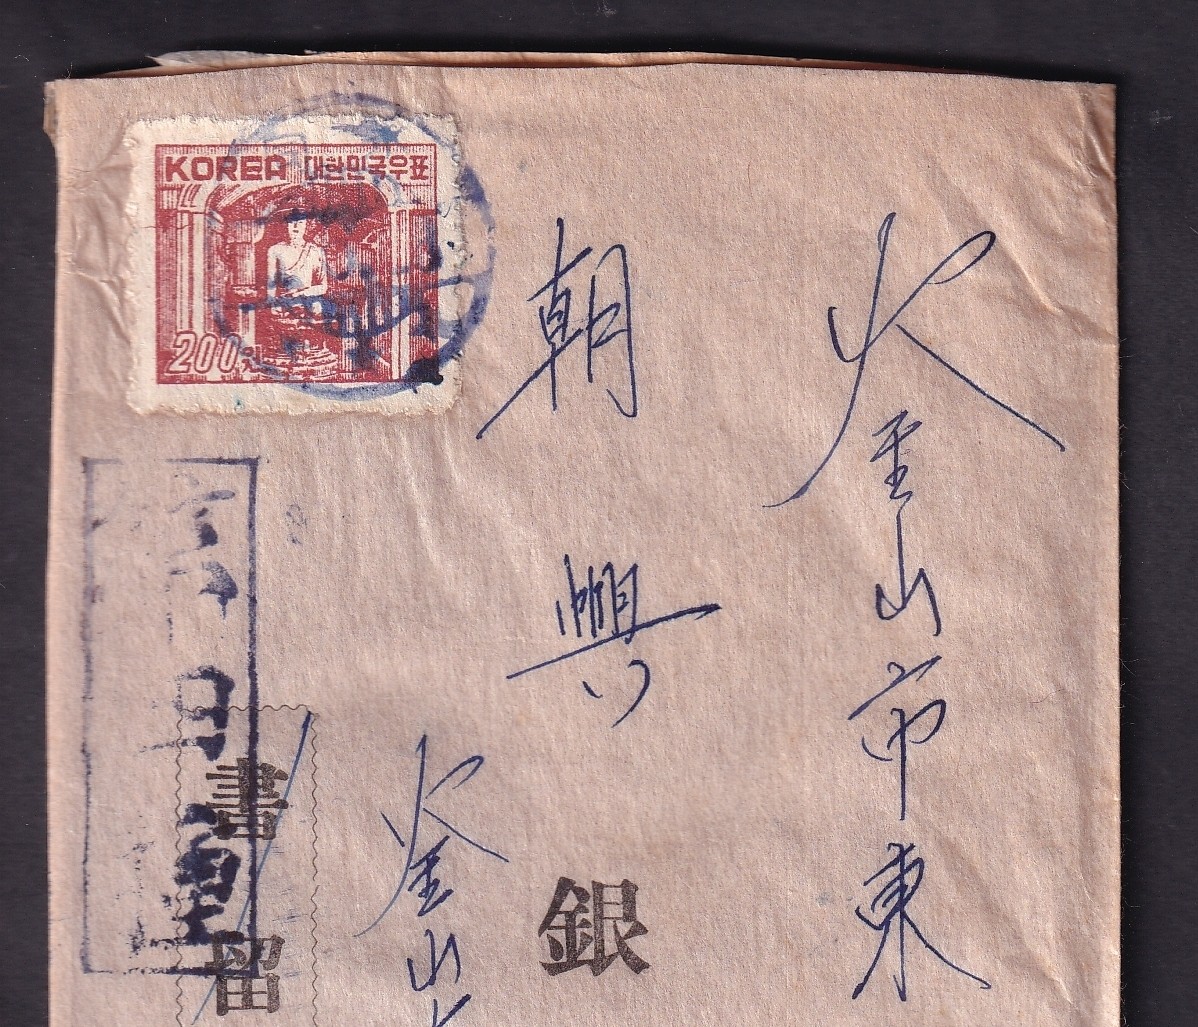 KOREA 대한민국우표
200원
釜山市東
朝興
銀
釜山
書留